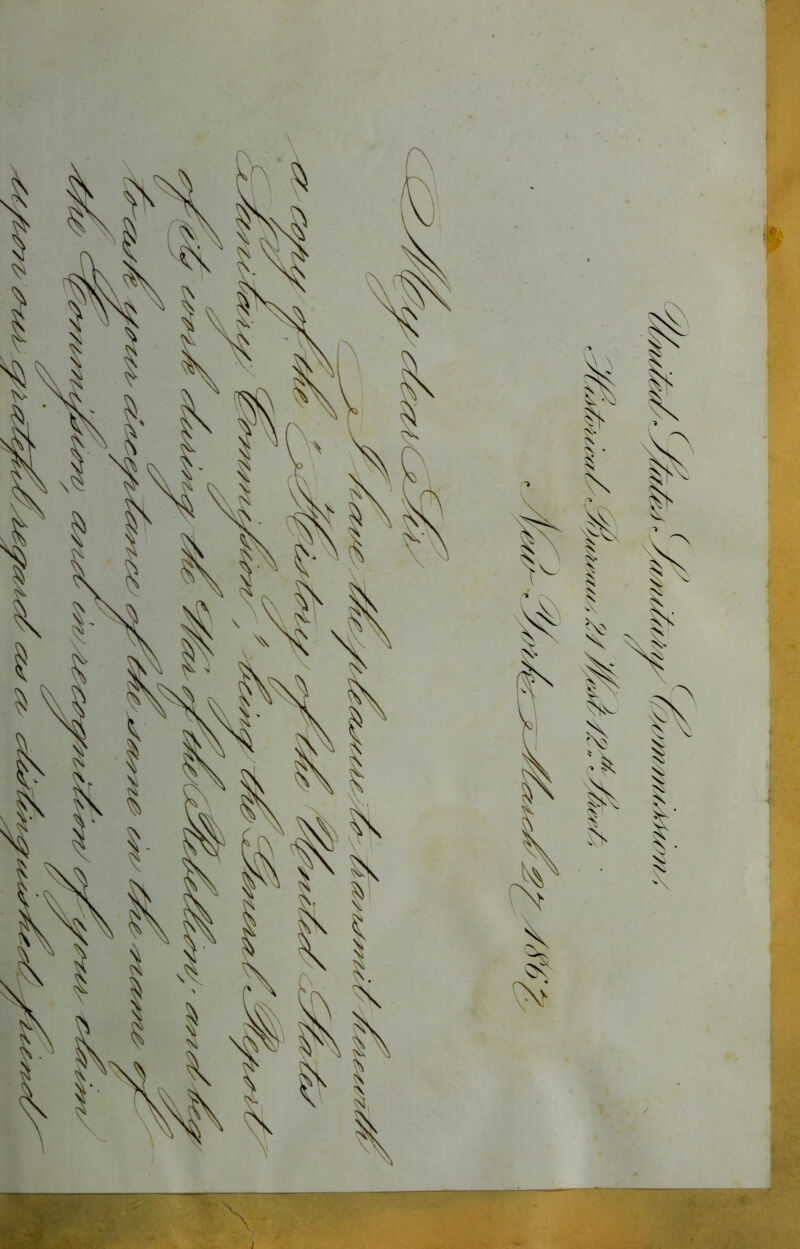 United States Sanitary Commission,
Historical Bureau, 21 West 12th Street,
New-York, March 27 1867.
My dear Sir
I have the pleasure to transmit herewith
a copy of the "History of the United States
Sanitary Commission," being the General Report
of its work during the War of the Rebellion; and beg
to ask your acceptance of the same in the name of
the Commission, and in recognition of your claim
upon our grateful regard as a distinguished friend